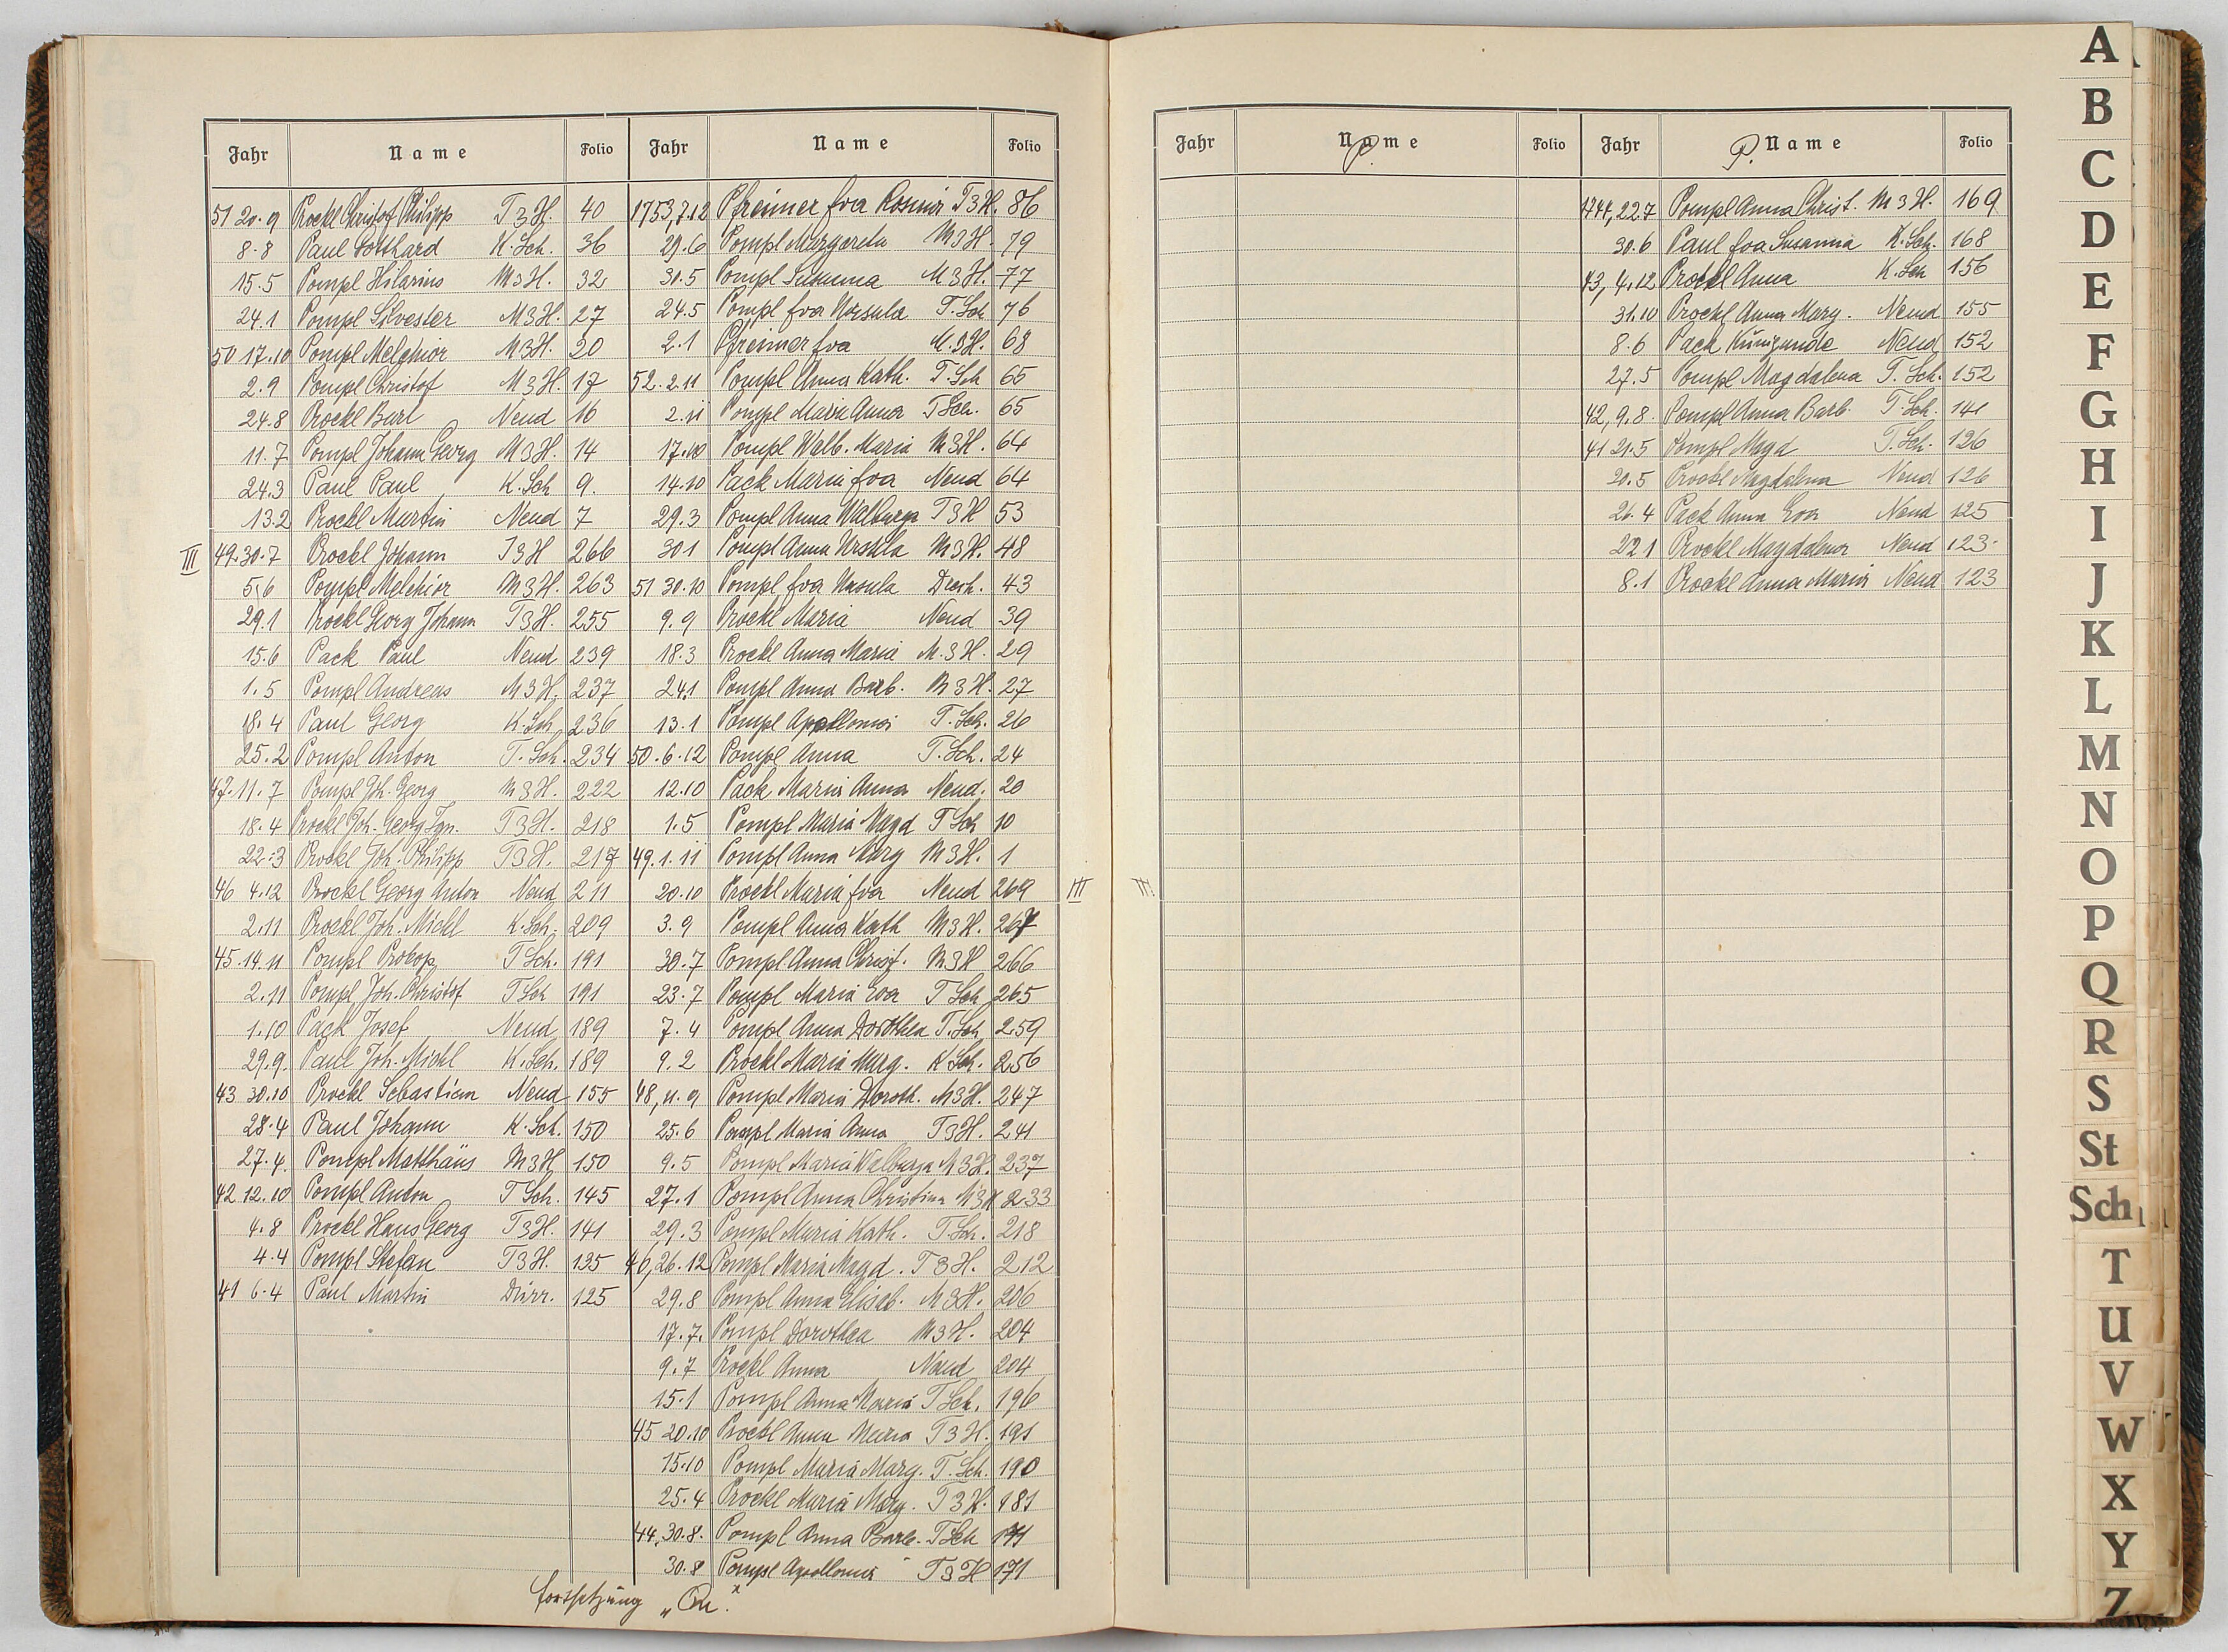 Jahr Name Folio
51 20.9 Prockl Christof Philipp T3H. 40
8.8 Paul Gotthard K.Sch. 36
15.5 Pompl Hilarius M3H. 32
24.1 Pompl Silvester M3H. 27
50 17.10 Pompl Melchior M3H. 20
2.9 Pompl Christof M3H. 17
24.8 Prockl Bart Neud 16
11.7 Pompl Johann Georg M3H. 14
24.3 Paul Paul K.Sch 9.
13.2 Prockl Martin Neud 7
III 49.30.7 Prockl Johann T3H 266
5.6 Pompl Melchior M3H. 263
29.1 Prockl Georg Johann T3H. 255
15.6 Pack Paul Neud 239
1.5 Pompl Andreas M3H. 237
18.4 Paul Georg K.Sch 236
25.2 Pompl Anton T.Sch. 234
47.11.7 Pompl Joh. Georg M3H. 222
18.4 Prockl Joh. Georg Ign. T3H. 218
22.3 Prockl Joh. Philipp T3H. 217
46 4.12 Prockl Georg Anton Neud 211
2.11 Prockl Joh. Michl K.Sch. 209
45.14.11 Pompl Prokop T Sch. 191
2.11 Pompl Joh. Christof T Sch 191
1.10 Pack Josef Neud 189
29.9. Paul Joh. Michl K.Sch. 189
43 30.10 Prockl Sebastian Neud 155
28.4 Paul Johann K.Sch. 150
27.4. Pompl Matthäus M3H 150
42 12.10 Pompl Anton T Sch. 145
4.8 Prockl Hans Georg T3H. 141
4.4 Pompl Stefan T3H. 135
41 6.4 Paul Martin Dürr. 125
Jahr Name Folio
1753, 7.12 Pfreimer Eva Rosina T3H. 86
29.6 Pompl Margareta M3H. 79
30.5 Pompl Susanna M3H. 77
24.5 Pompl Eva Ursula T.Sch 76
2.1 Pfreimer Eva M.3H. 68
52. 2.11 Pompl Anna Kath. T.Sch 65
2.11 Pompl Maria Anna T Sch. 65
17.10 Pompl Walb. Maria M3H. 64
14.10 Pack Maria Eva Neud 64
29.3 Pompl Anna Walburga T3H 53
30.1 Pompl Anna Ursula M3H. 48
51 30.10 Pompl Eva Ursula 43
9.9 Prockl Maria Neud 39
18.3 Prockl Anna Maria M.3H. 29
24.1 Pompl Anna Barb. M3H. 27
13.1 Pompl Apollonia T.Sch. 26
50.6.12 Pompl Anna T.Sch. 24
12.10 Pack Maria Anna Neud. 20
1.5 Pompl Maria Magd T Sch 10
49.1.11 Pompl Anna Marg M3H. 1
20.10 Prockl Maria Eva Neud 269 III
3.9 Pompl Anna Kath M3H. 267
30.7 Pompl Anna Christ. M3H 266
23.7 Pompl Maria Eva T Sch 265
7.4 Pompl Anna Dorothea T.Sch 259
9.2 Prockl Maria Marg. K Sch. 256
48, 11.9 Pompl Maria Doroth. M3H. 247
25.6 Pompl Maria Anna T3H. 241
9.5 Pompl Maria Walburga M3H. 237
27.1 Pompl Anna Christina M3H 233
29.3 Pompl Maria Kath. T.Sch. 218
46, 26.12 Pompl Maria Magd. T3H. 212
29.8 Pompl Anna Elisab. M3H. 206
17.7. Pompl Dorothea M3H. 204
9.7 Prockl Anna Neud 204
15.1 Pompl Anna Maria T Sch. 196
45 20.10 Prockl Anna Maria T3H. 191
15.10 Pompl Maria Marg. T.Sch. 190
25.4 Prockl Maria Marg. T3H. 181
44, 30.8. Pompl Anna Barb. T Sch 171
30.8 Pompl Apollonia T3H 171
Fortsetzung
Jahr Name P. Folio
III
Jahr P. Name Folio
1744, 22.7 Pompl Anna Christ. M3H. 169
30.6 Paul Eva Susanna K.Sch. 168
43, 4.12 Prockl Anna K.Sch 156
31.10 Prockl Anna Marg. Neud 155
8.6 Pack Kunigunde Neud 152
27.5 Pompl Magdalena T.Sch. 152
42, 9.8. Pompl Anna Barb. T.Sch. 141
41 21.5 Pompl Magd T.Sch. 126
20.5 Prockl Magdalena Neud 126
26.4 Pack Anna Eva Neud 125
22.1 Prockl Magdalena Neud 123
8.1 Prockl Anna Maria Neud 123
A
B
C
D
E
F
G
H
I
J
K
L
M
N
O
P
Q
R
S
St
Sch
T
U
V
W
X
Y
Z